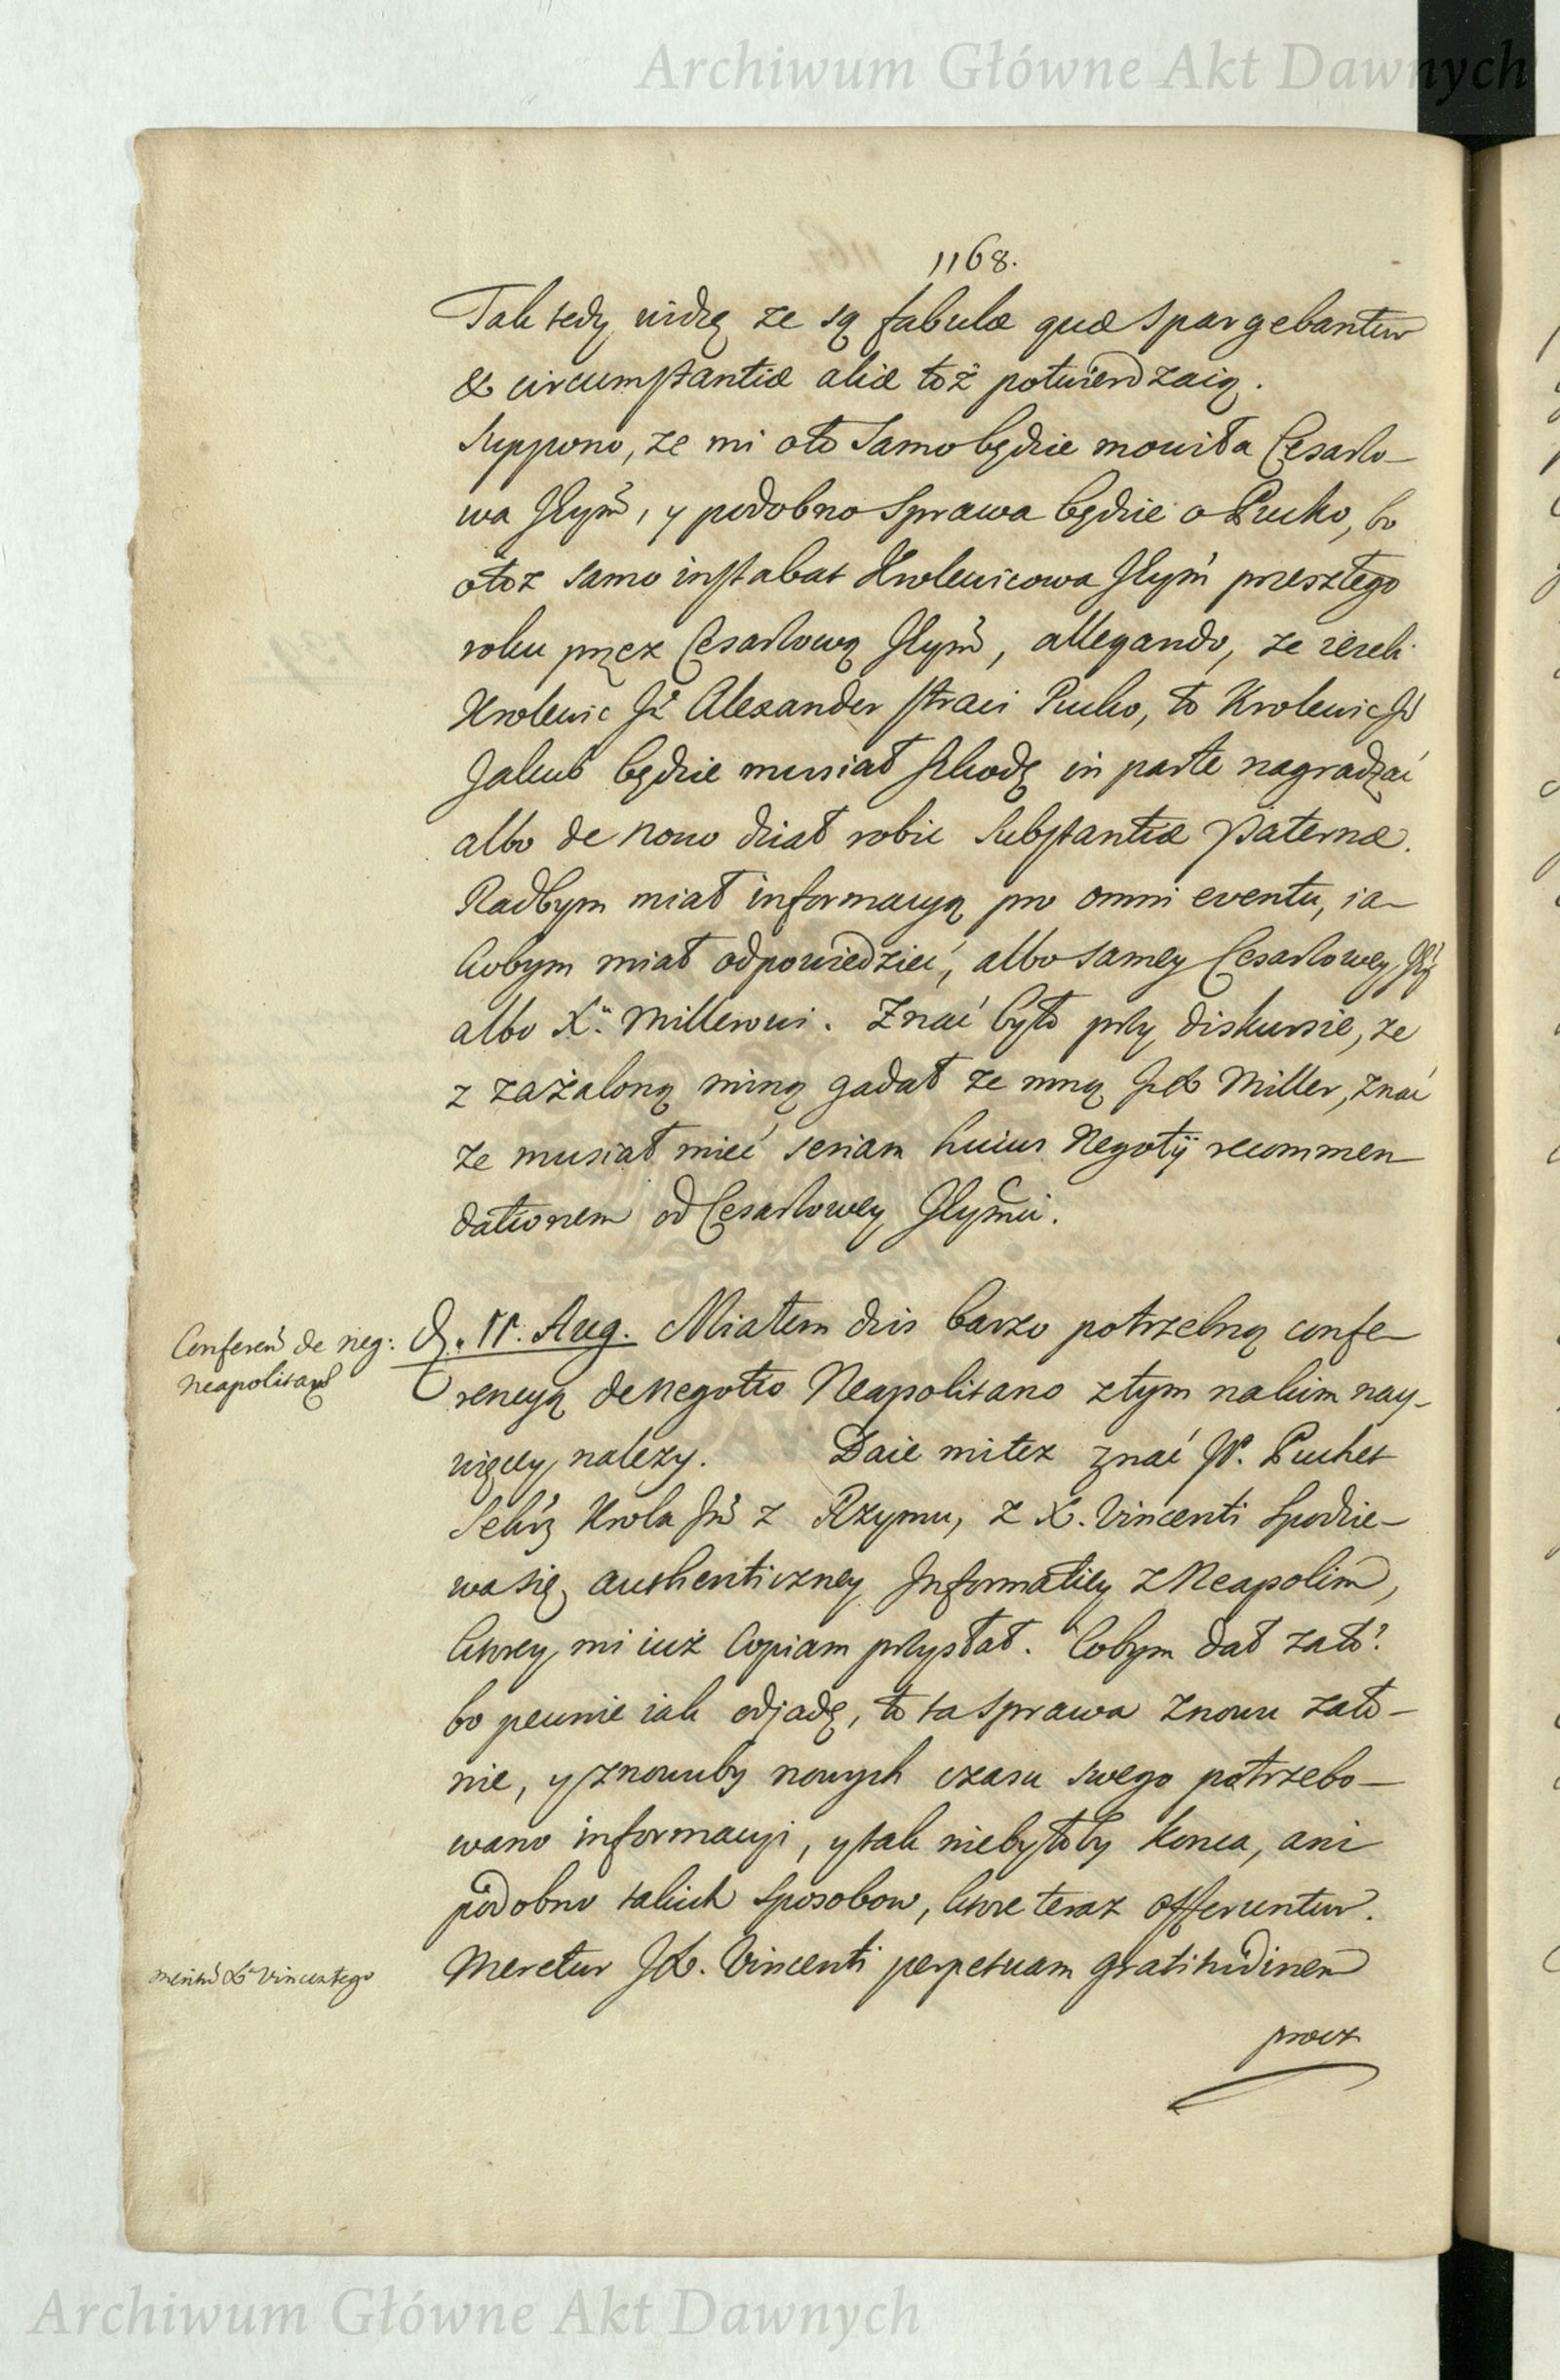 Archiwum Główne Akt Dawnych
1168.
Tak tedy widzę ze są fabulæ quæ spargebantur
& circumstantiæ aliæ toż potwierdzaią.
Suppono, ze mi oto samo będzie mowiła Cesarzo-
wa Jeym̃, y podobno sprawa będzie o Pucko, bo
otoz samo instabat Krolewicowa Jeym̃ przeszłego
roku przez Cesarzową Jeym̃, allegando, ze iezeli
Krolewic Jẽ Alexander straci Pucko, to Krolewic Jẽ
Jakub będzie musiał szkodę in parte nagradzać
albo de novo dział robic substantiæ paternæ.
Radbym miał informacyą pro omni eventu, ia-
kobym miał odpowiedzieć, albo samey Cesarzowey
albo X. Millerowi. Znać było przy diskursie, ze
z zażaloną miną gadał ze mną JX Miller, znać
ze musiał mieć seriam huius Negotij recommen
dationem od Cesarzowey Jeymci.
Conferen̄ de neg:
Neapolitano
d. 11. Aug. Miałem dzis barzo potrzebną confe-
rencyą de negotio Neapolitano z tym na kim nay-
więcey nalezy. Daie mi tez znać JP. Puchet
Sekrz Krola Jm̃ z Rzymu, z X. Vincenti spodzie-
wa się authenticzney Informatiey z Neapolim,
ktorey mi iuż Copiam przysłał. Cobym dał zato?
bo pewnie iak odjadę, to ta sprawa znowu zato-
nie, y znowuby nowych czasu swego potrzebo-
wano informacyi, y tak niebyłoby konca, ani
podobno takich sposobow, ktore teraz offeruntur.
merita X Vincentego
Meretur JX. Vincenti perpetuam gratitudinem
procz
Archiwum Główne Akt Dawnych